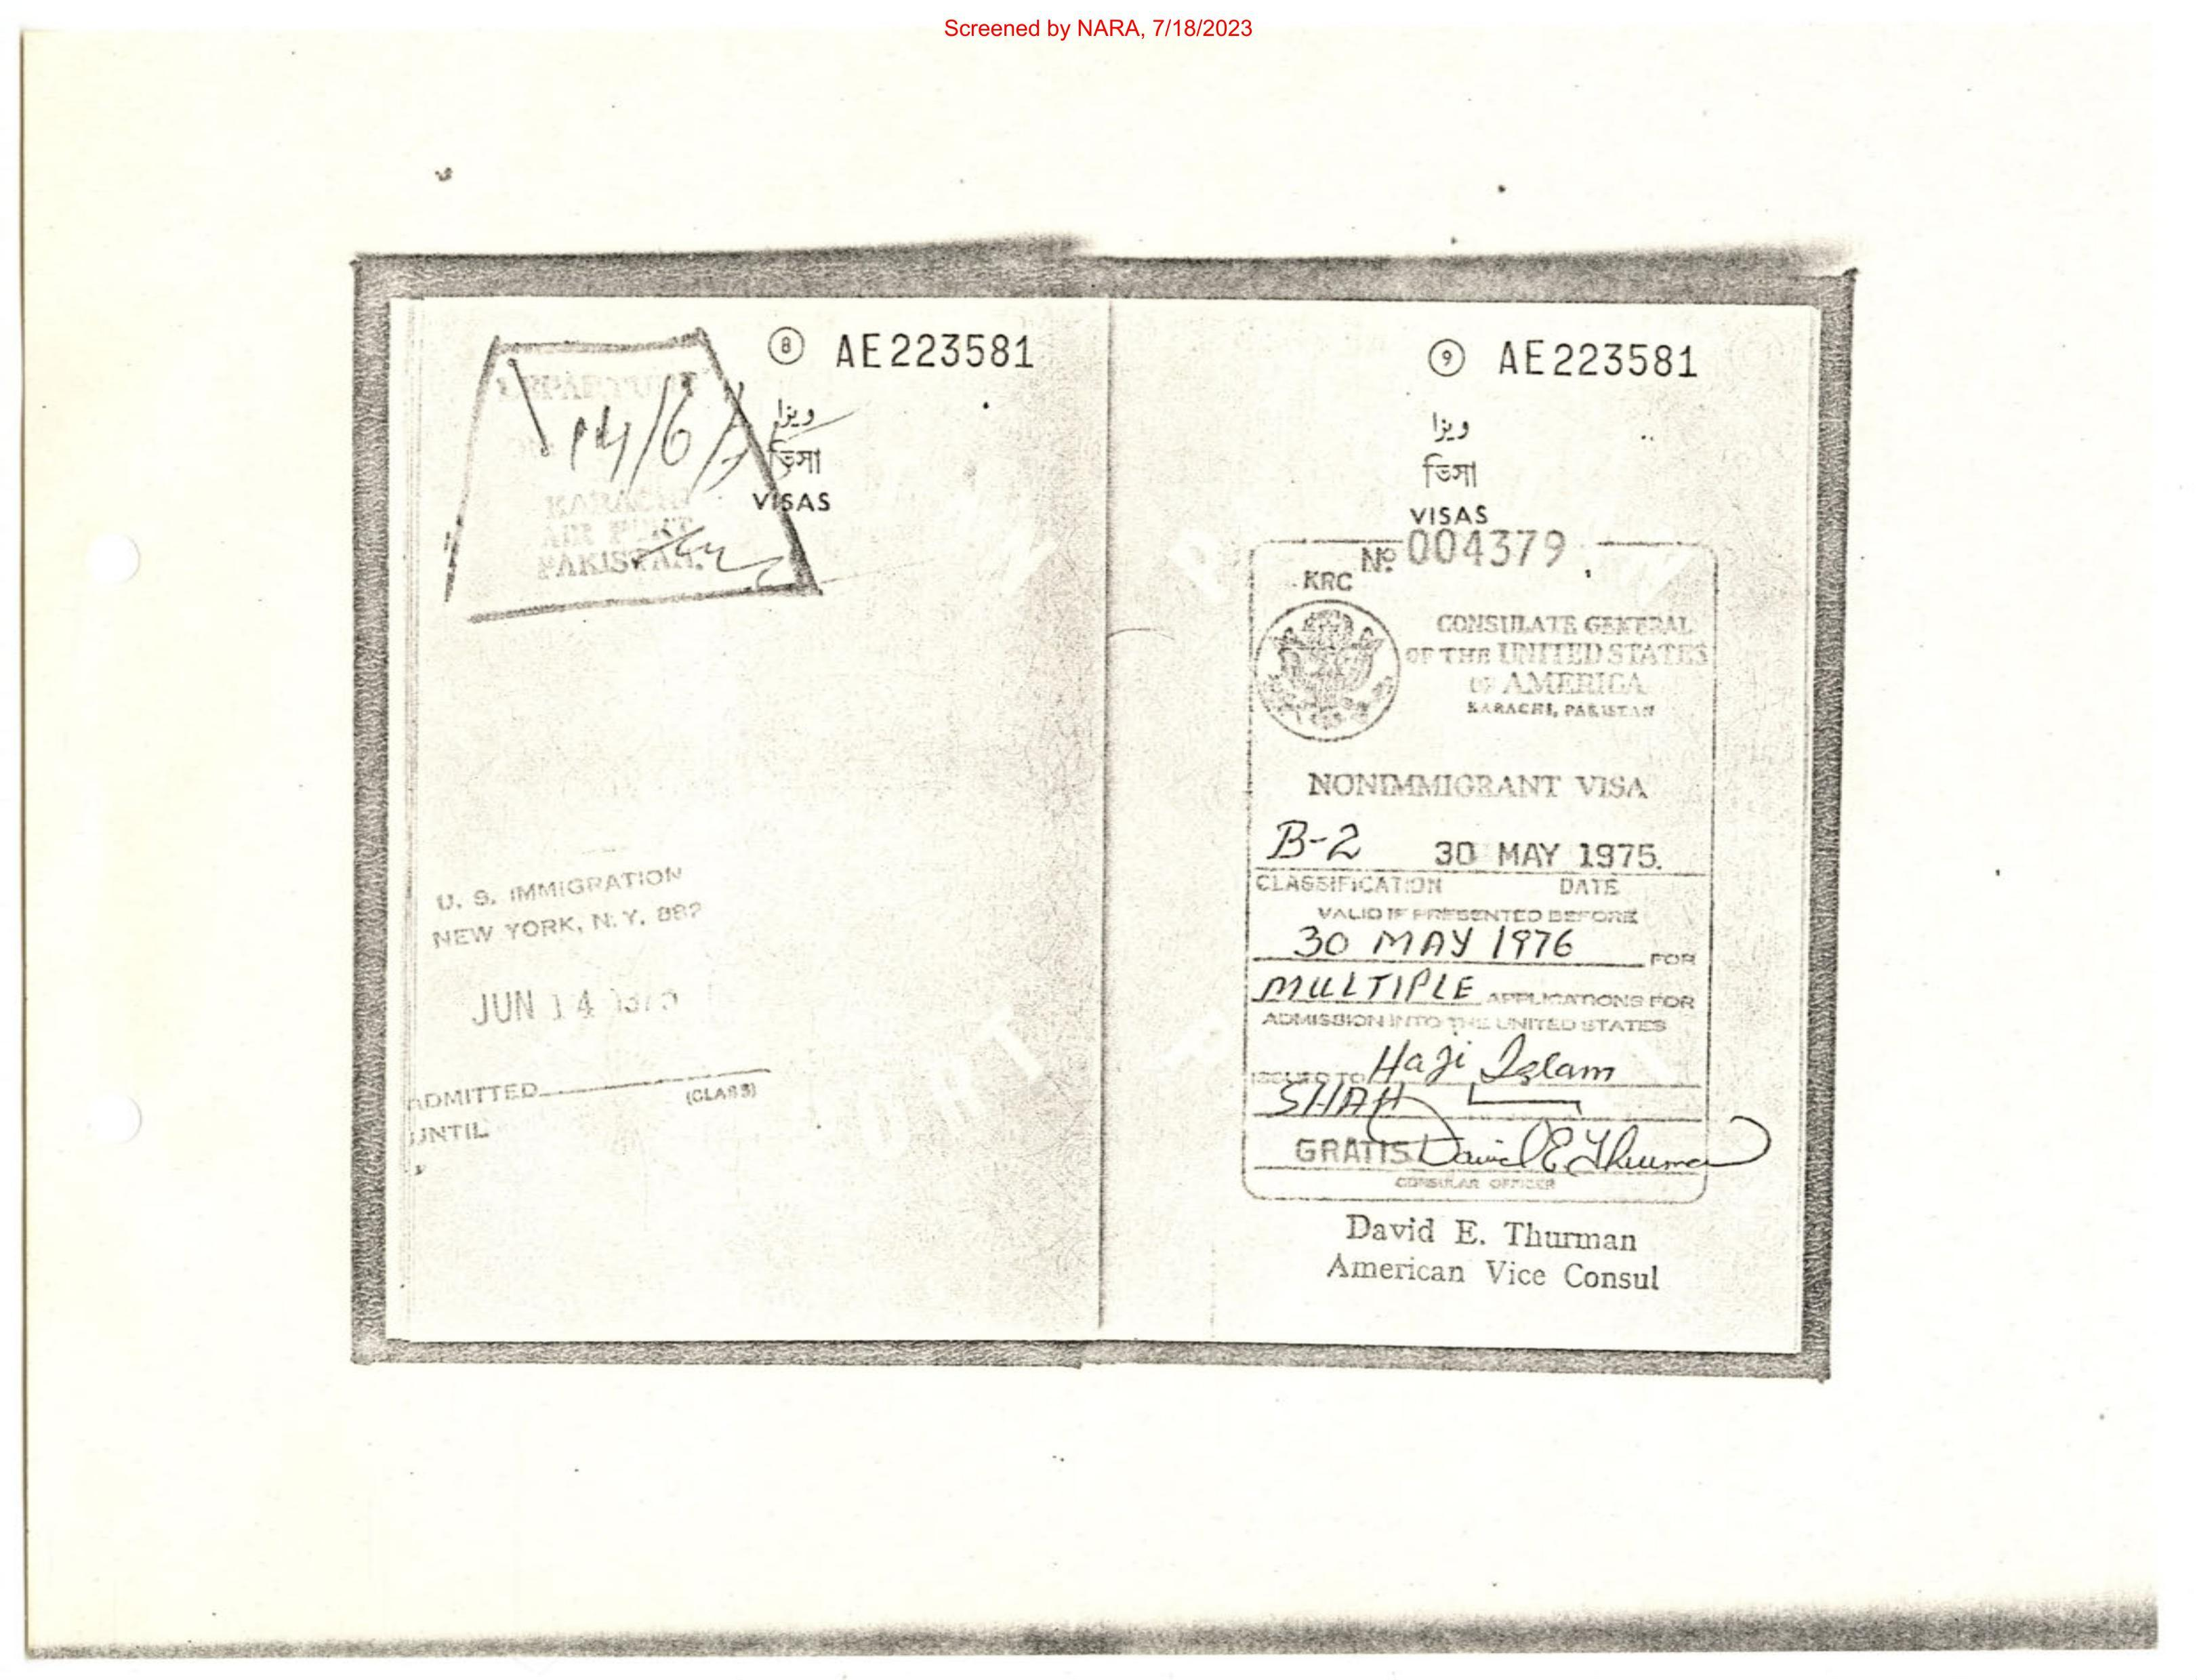 Screened by NARA, 7/18/2023
8 AE223581
ویزا
ভিসা
VISAS
DEPARTURE
14/6/
KARACHI
AIR PORT
PAKISTAN.
U. S. IMMIGRATION
NEW YORK, N. Y. 882
JUN 14 1975
ADMITTED
(CLASS)
UNTIL
9 AE223581
ویزا
ভিসা
VISAS
Nº 004379
KRC
CONSULATE GENERAL
OF THE UNITED STATES
OF AMERICA
KARACHI, PAKISTAN
NONIMMIGRANT VISA
B-2 30 MAY 1975.
CLASSIFICATION DATE
VALID IF PRESENTED BEFORE
30 MAY 1976 FOR
MULTIPLE APPLICATIONS FOR
ADMISSION INTO THE UNITED STATES
ISSUED TO Haji Islam
SHAH
GRATIS David E. Thurman
CONSULAR OFFICER
David E. Thurman
American Vice Consul